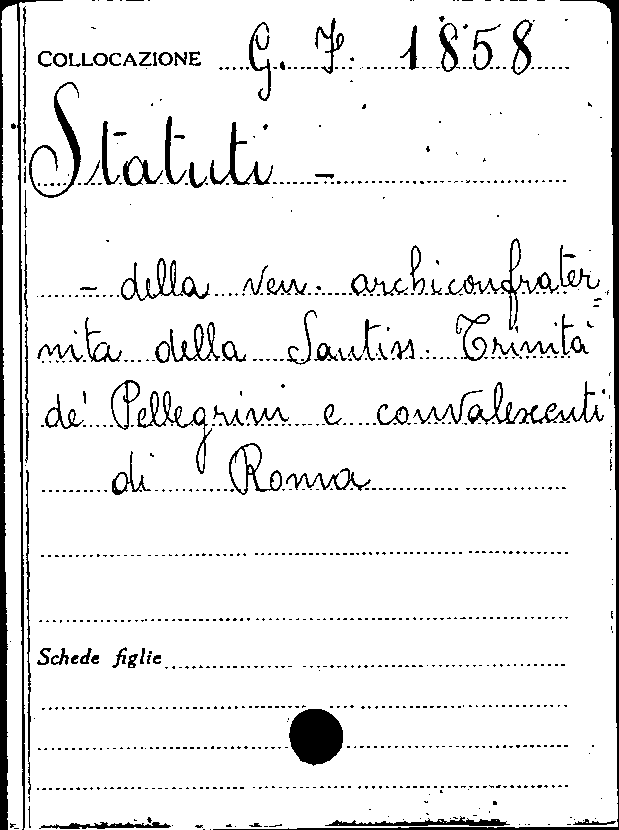 COLLOCAZIONE G. F. 1858
Statuti -
- della ven. archiconfrater=
nita della Santiss. Trinità
de' Pellegrini e convalescenti
di Roma
Schede figlie